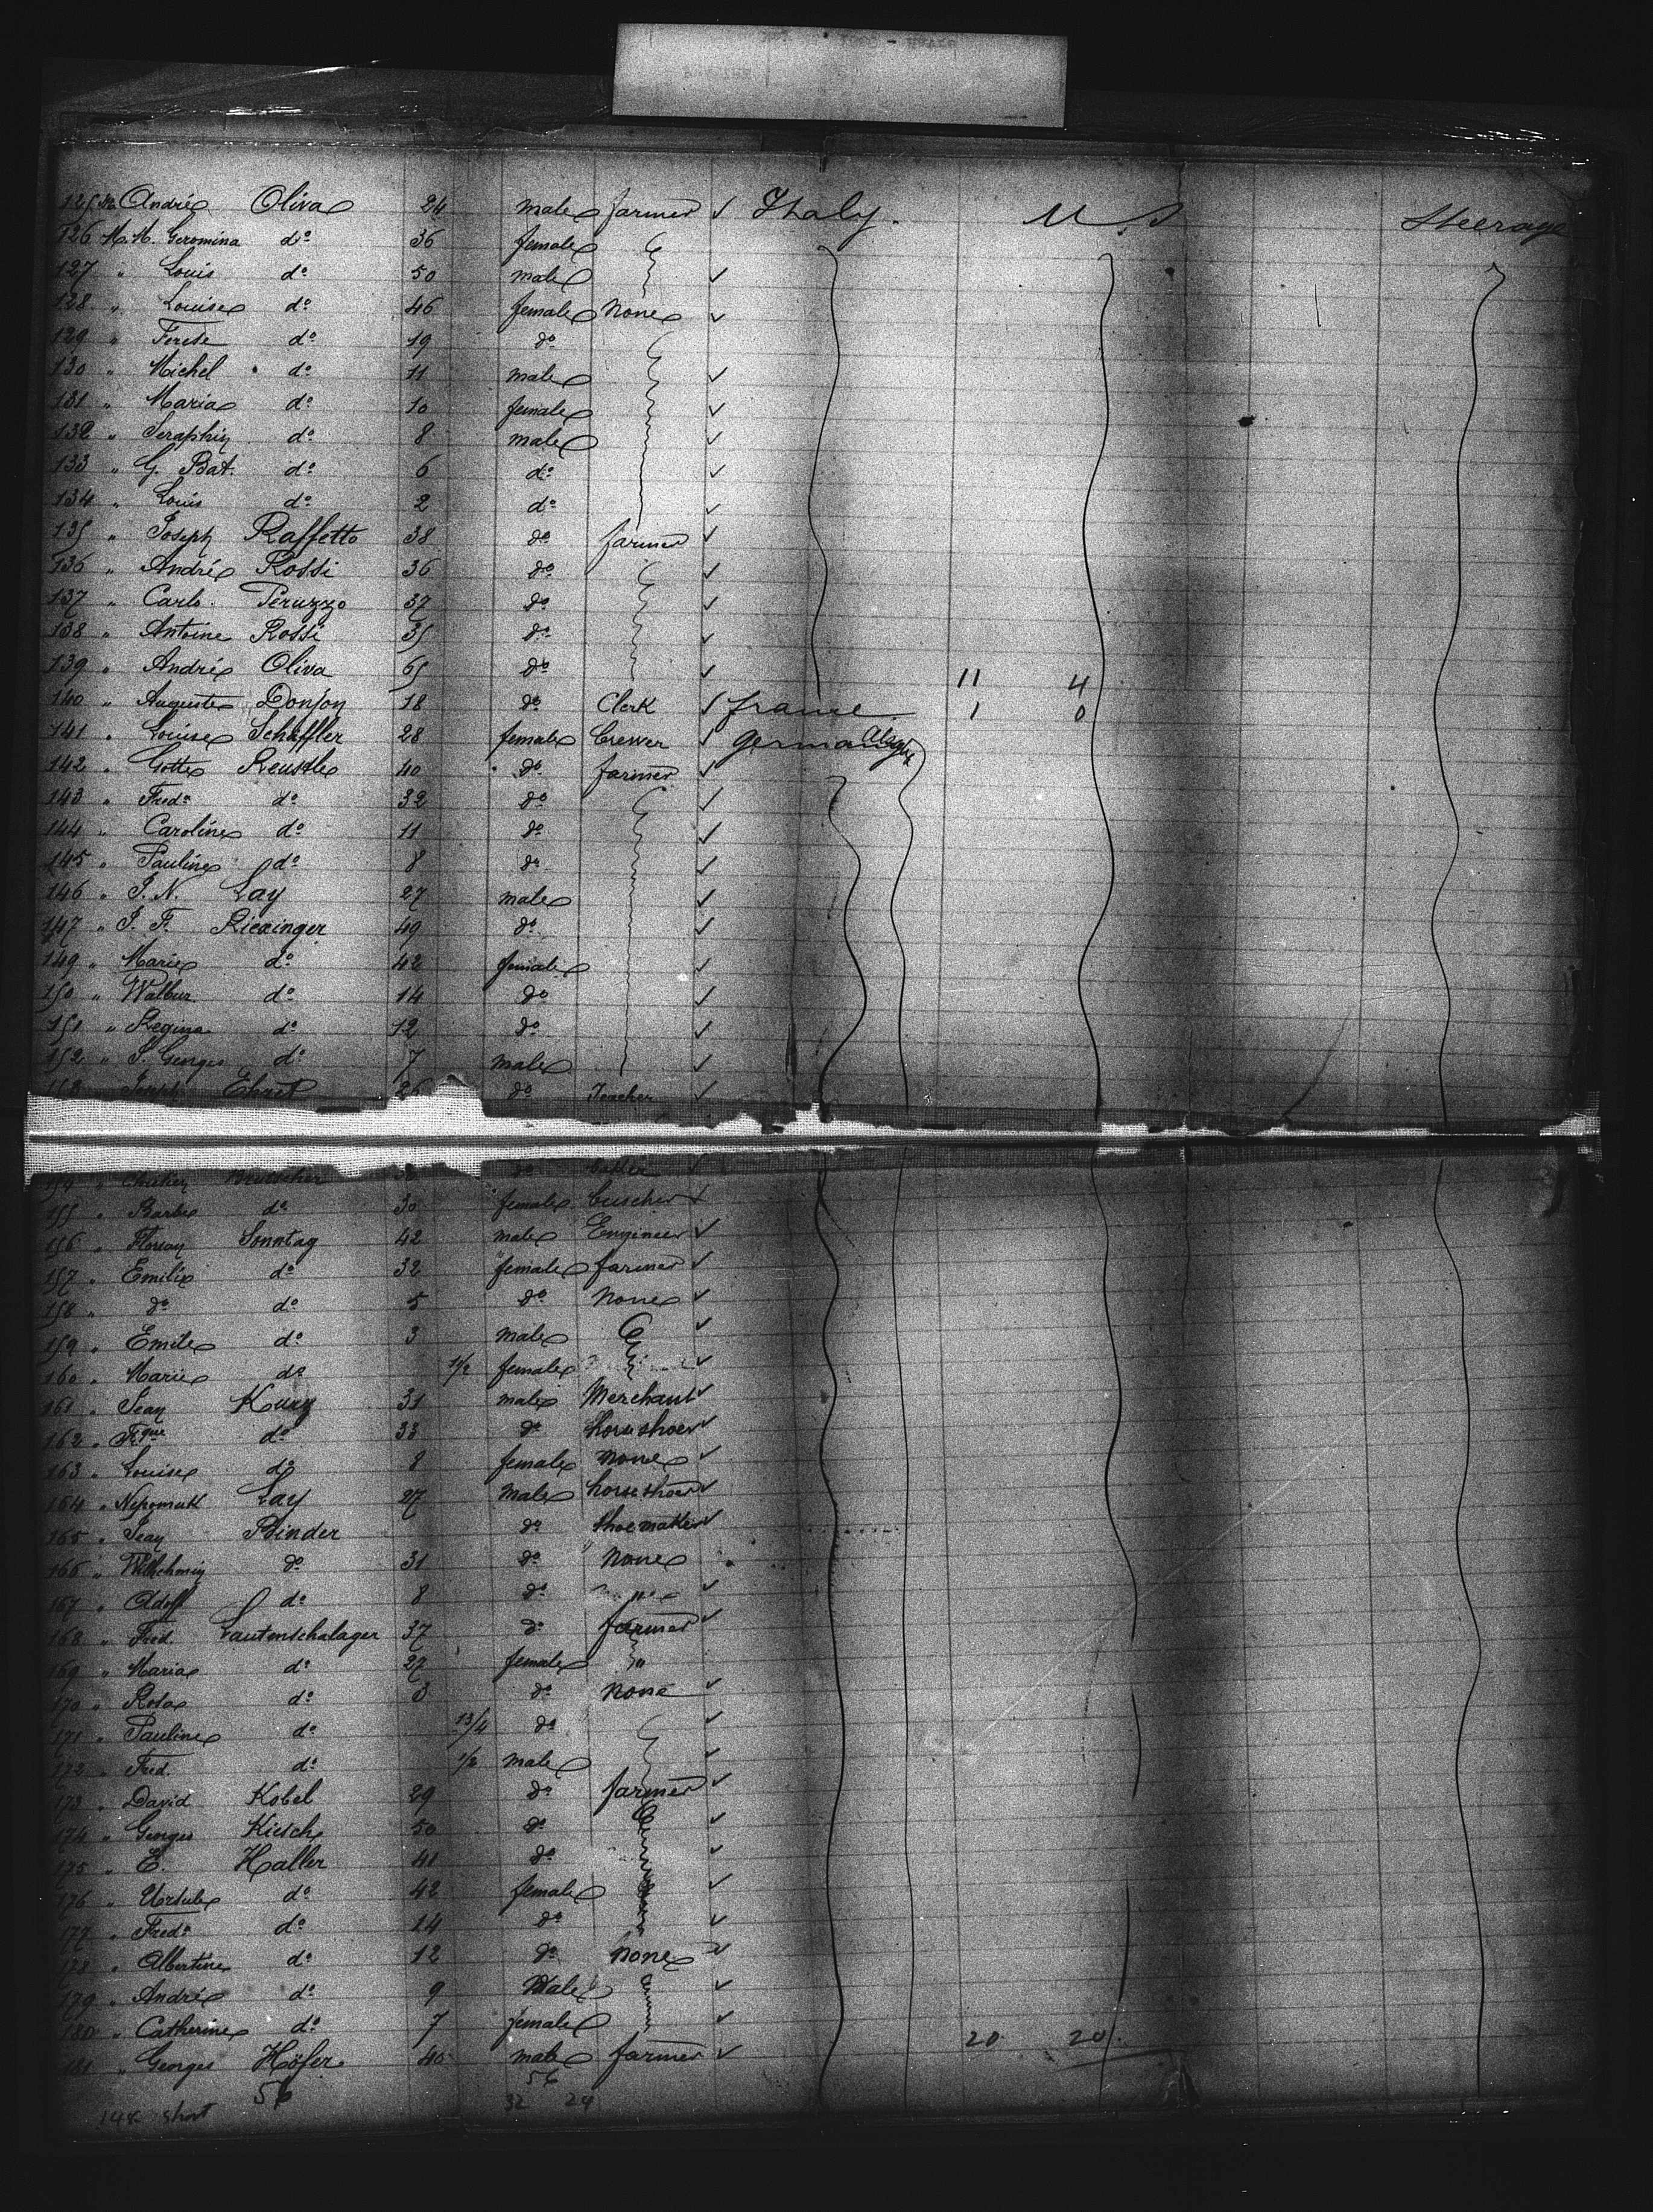 125 M. André Oliva 24 male farmer ✓ Ithaly. U. S Steerage
126 M. M. Geromina do 36 female
127 " Louis do 50 male ✓
128 " Louise do 46 female None ✓
129 " Terese do 19 do
130 " Michel do 11 male ✓
131 " Maria do 10 female ✓
132 " Seraphin do 8 male ✓
133 " G. Bat. do 6 do ✓
134 " Louis do 2 do ✓
135 " Joseph Raffetto 38 do farmer ✓
136 " André Rossi 36 do ✓
137 " Carlo Peruzzo 37 do ✓
138 " Antoine Rossi 35 do ✓
139 " André Oliva 65 do ✓ 11 4
140 " Auguste Donjon 18 do Clerk ✓ france 1 0
141 " Louise Schäffler 28 female Crewer ✓ germany
142 " Gotte Reustle 40 do farmer ✓
143 " Freda do 32 do ✓
144 " Caroline do 11 do ✓
145 " Pauline do 8 do ✓
146 " J. N. Lay 27 male ✓
147 " J. F. Riexinger 49 do ✓
149 " Marie do 42 female ✓
150 " Walbur do 14 do ✓
151 " Regina do 12 do ✓
152 " J. Georges do 7 male ✓
153 Joseph Ehret 26 do Teacher ✓
154 " do ✓
155 " Barbe do 30 female
156 " Florian Sonntag 42 male Engineer ✓
157 " Emilie do 32 female farmer ✓
158 " do do 5 do None ✓
159 " Emile do 3 male ✓
160 " Marie do 1/2 female ✓
161 " Jean Kury 31 male Merchant ✓
162 " Fque do 33 do horse shoer ✓
163 " Louise do 8 female none ✓
164 " Nepomuk Lay 27 Male horse shoer ✓
165 " Jean Binder do shoe matter ✓
166 " Wilhelmin do 31 do None
167 " Adolf do 8 do " ✓
168 " Fred. Lautenschalager 37 do farmer ✓
169 " Maria do 27 female "
170 " Rosa do 3 do none ✓
171 " Pauline do 13/4 do ✓
172 " Fred. do 1/2 male ✓
173 " David Kobel 29 do farmer ✓
174 " Georges Kirsch 50 do ✓
175 " E. Haller 41 do ✓
176 " Ursule do 42 female ✓
177 " Freda do 14 do ✓
178 " Albertine do 12 do None ✓
179 " André do 9 Male ✓
180 " Catherine do 7 female ✓
181 " Georges Höfer 40 male farmer ✓ 20 20
56 56
148 short 32 24